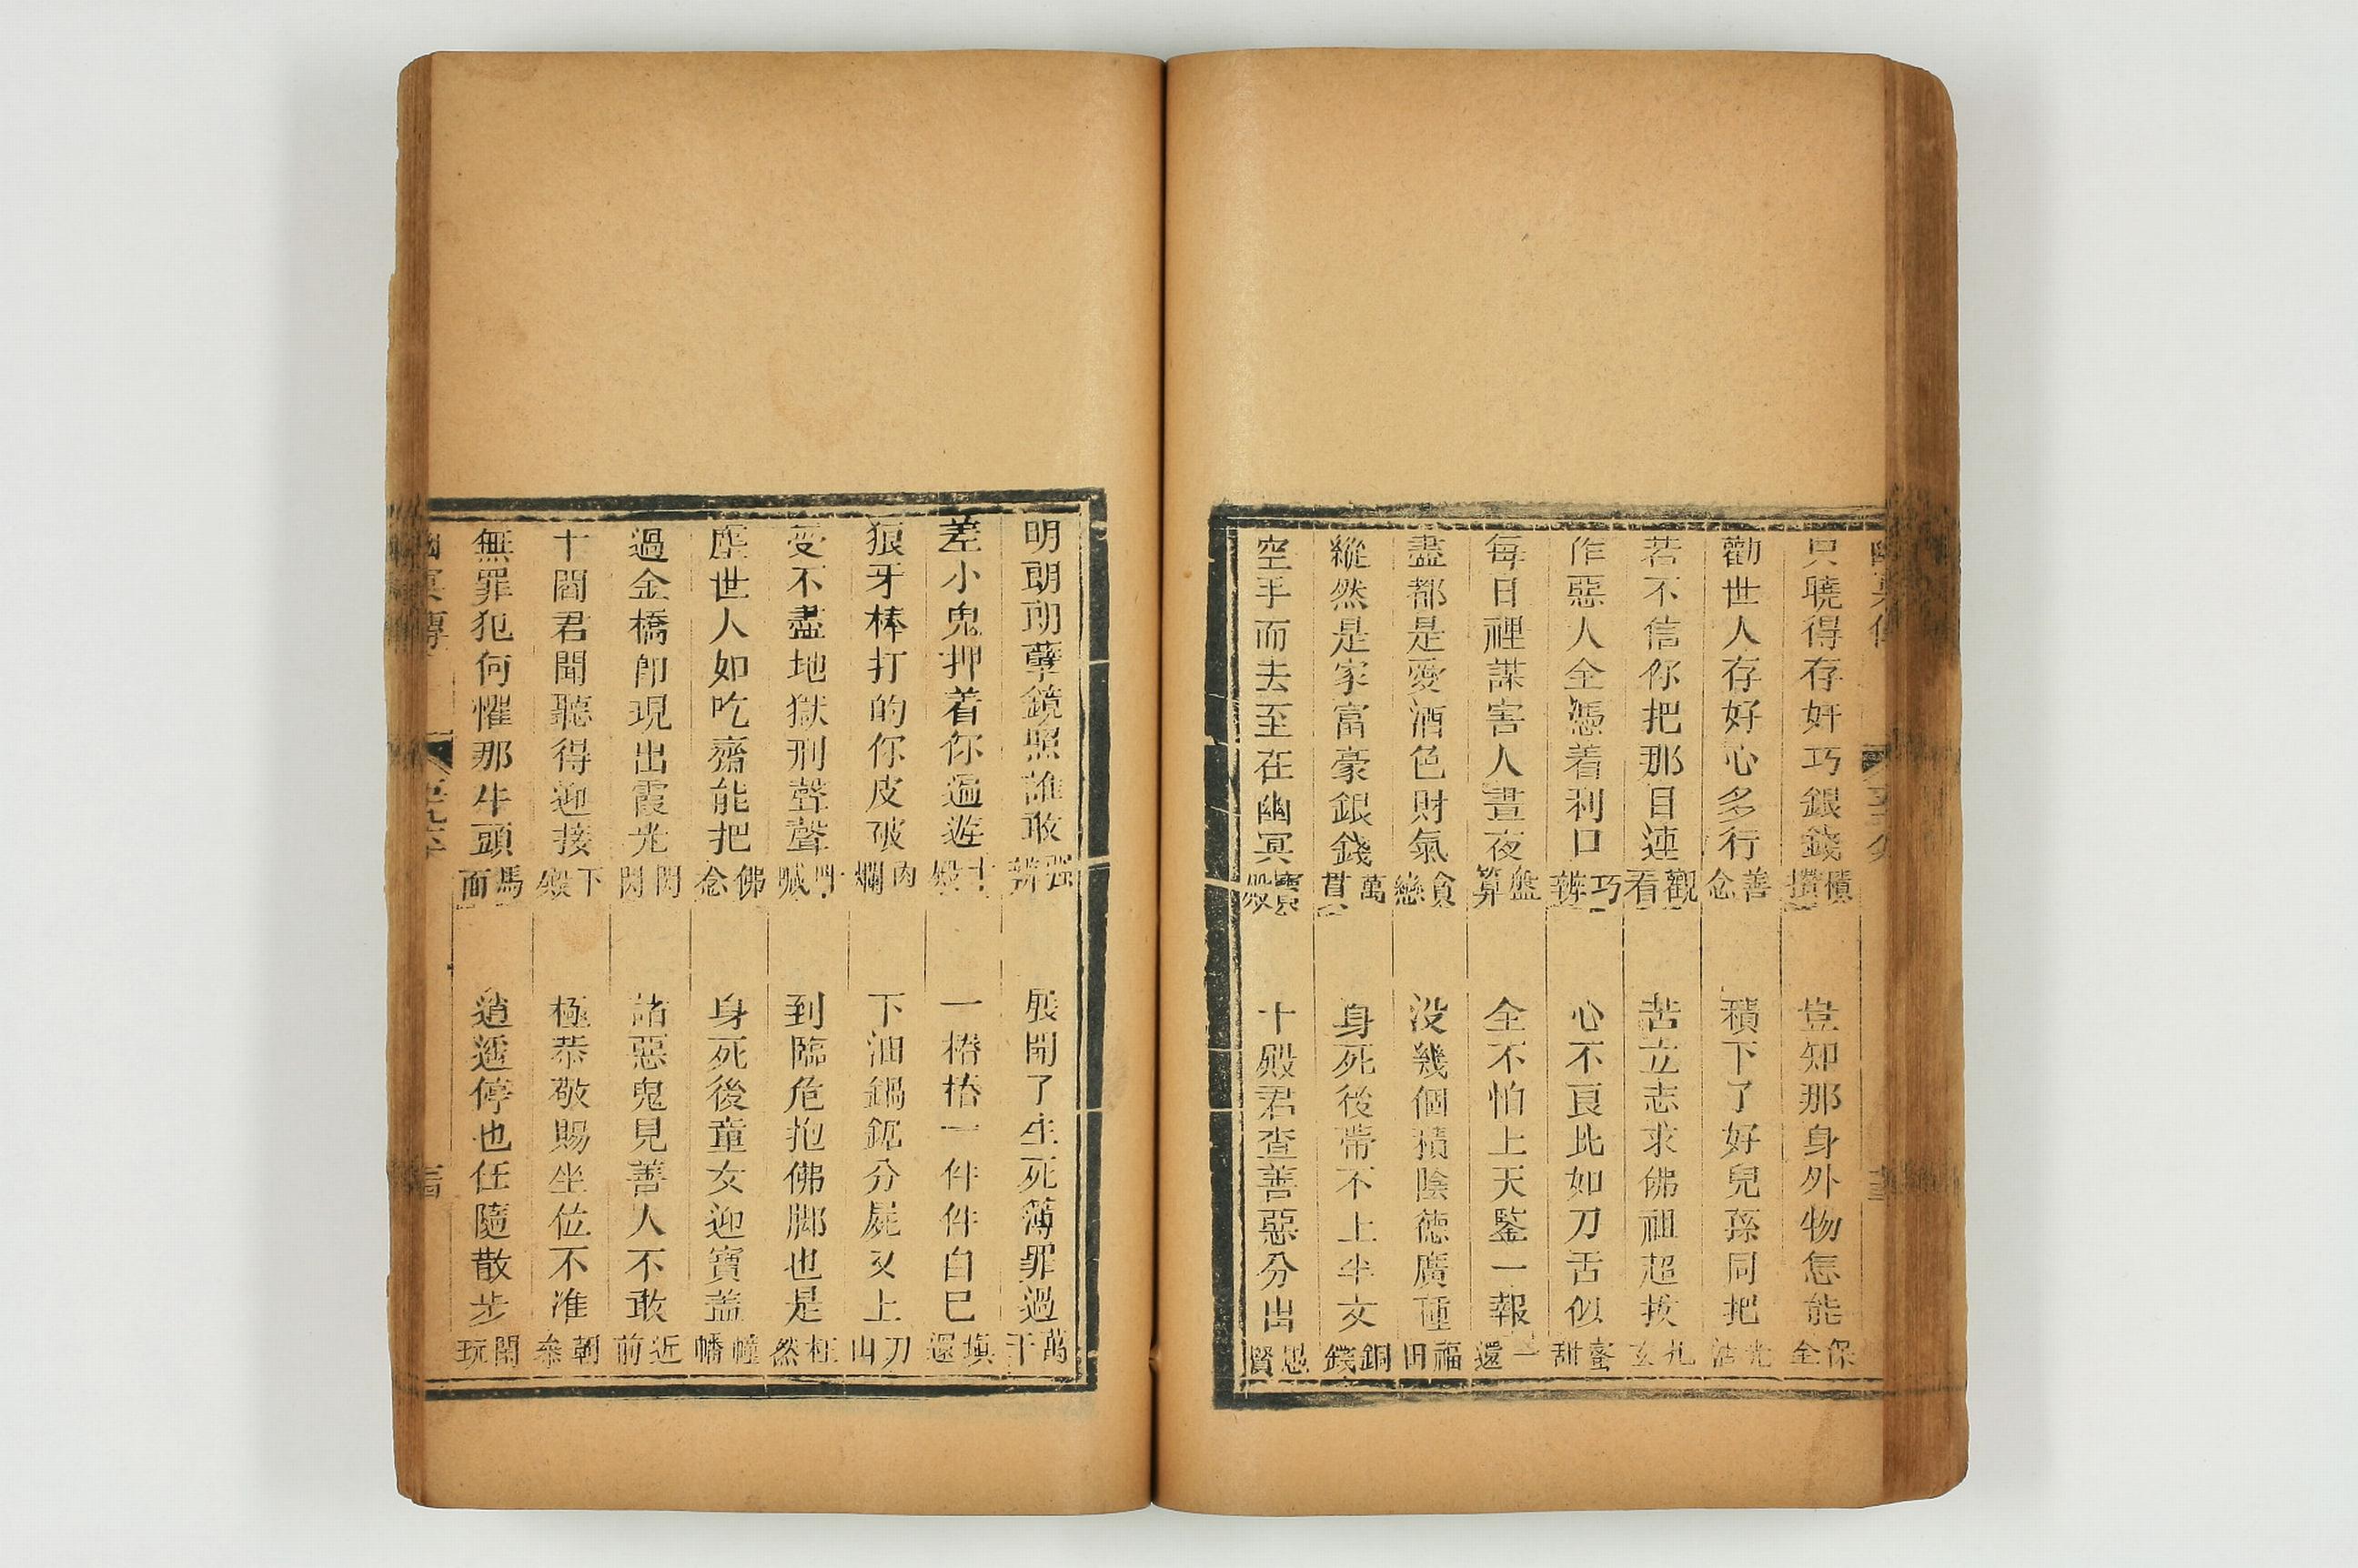 只曉得存奸巧銀錢積攢 豈知那身外物怎能保全
勸世人存好心多行善念 積下了好兒孫同把光沾
若不信你把那目連觀看 苦立志求佛祖超拔九玄
作惡人全憑着利口巧辨 心不良比如刀舌似蜜甜
每日裡謀害人晝夜盤算 全不怕上天鑒一報一還
盡都是愛酒色財氣貪戀 没幾個積陰德廣種福田
縱然是家富豪銀錢萬貫 身死後帶不上半文銅錢
空手而去至在幽冥寳殿 十殿君查善惡分出愚賢
明朗朗孽鏡照誰敢强辨 展開了生死簿罪過萬千
差小鬼押着你遍遊十殿 一樁樁一件件自已塡還
狼牙棒打的你皮破肉爛 下油鍋鋸分屍又上刀山
受不盡地獄刑聲聲呌喊 到臨危抱佛脚也是枉然
塵世人如吃齋能把佛念 身死後童女迎寶盖幢幡
過金橋卽現出霞光閃閃 諸惡鬼見善人不敢近前
十閻君聞聽得迎接下殿 極恭敬賜坐位不准朝叅
無罪犯何懼那牛頭馬面 逍遥停也任隨散步閒玩
幽冥傳